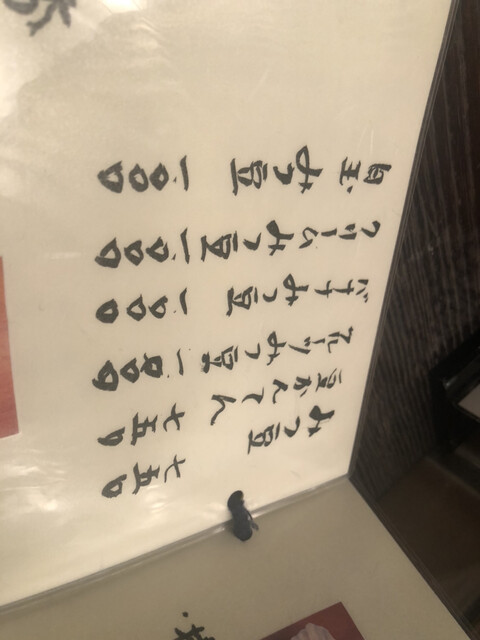 みつ豆 七五〇
豆かんてん 七五〇
フルーツみつ豆 一〇〇〇
バナナみつ豆 一〇〇〇
クリームみつ豆 一〇〇〇
白玉みつ豆 一〇〇〇